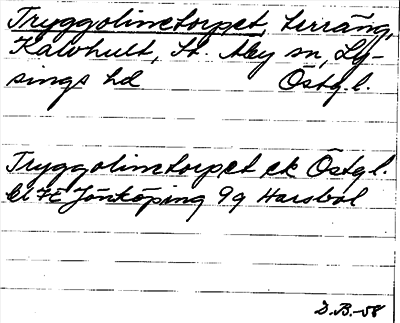 Tryggolinetorpet, terräng,
Kalvhult, St. Åby sn, Ly-
sings hd Östg.l.
Tryggolinetorpet ek Östgl.
bl 72 Jönköping 9g Harsbol
D.B.-58